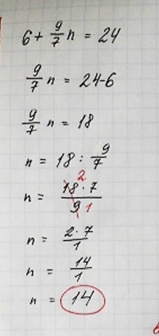 6 + 9/7 n = 24
9/7 n = 24-6
9/7 n = 18
n = 18 : 9/7
2
n = 18 · 7 / 9 1
n = 2 · 7 / 1
n = 14/1
n = 14